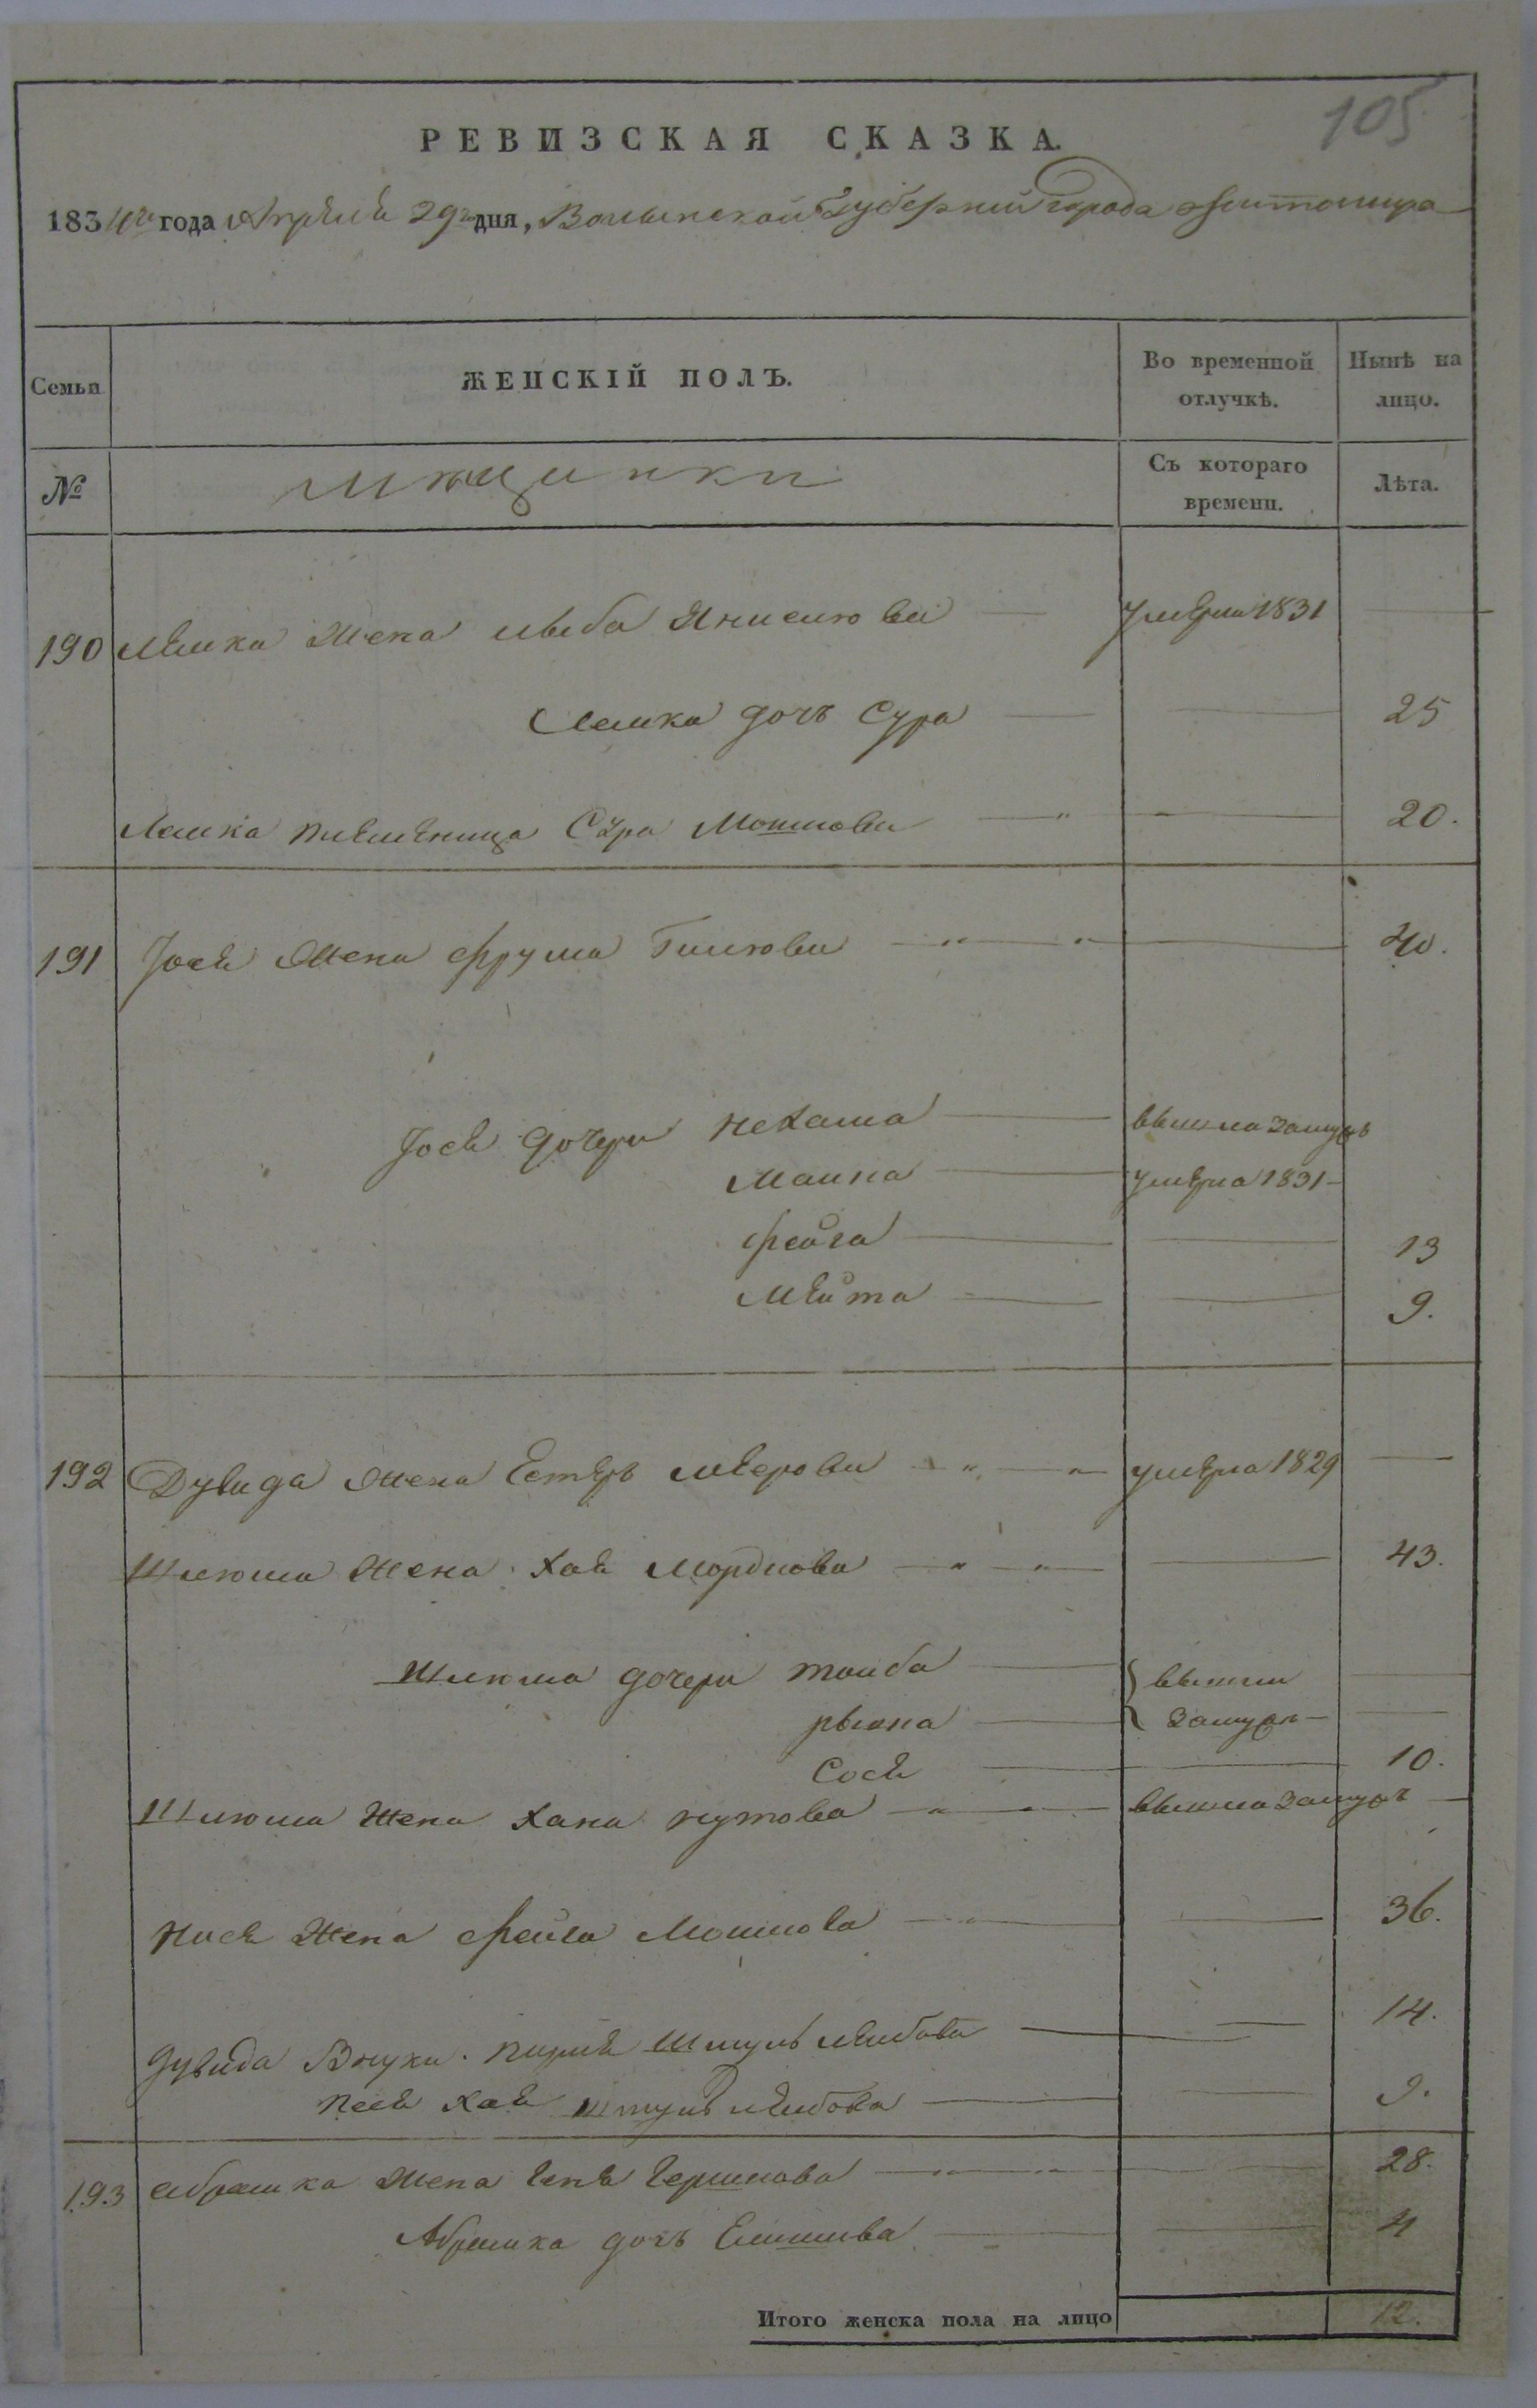 105
РЕВИЗСКАЯ СКАЗКА.
1834го года Апреля 29го дня, Волынской Губернии города Житомира
Семьи
ЖЕНСКІЙ ПОЛЪ.
Во временной отлучкѣ.
Нынѣ на лицо.
№
мещанки
Съ котораго времени.
Лѣта.
190 Лейки Жена Лыба умерла 1831
дочь Сура 25
племеница Сура Мошкова 20.
191 Іося Жена Фрума 40.
Іося дочери Нехама вышла замужъ
Малка умерла 1831
Фейга 13
9.
192 Дувида Жена Естеръ Меерова умерла 1829
Шлюма Жена Хая Мордкова 43.
Шлюма дочери Тайба вышли
замужъ
Сося 10.
Шлюма Жена Хана Нутова вышла замужъ
Нися Жена Фейга Мошкова 36.
Дувида Внуки Шмуль Лейбова 14.
Песя Хая Шмуль Лейбова 9.
193 Абрамка Жена Гершкова 28.
Абрамка дочь 4
Итого женска пола на лицо 12.